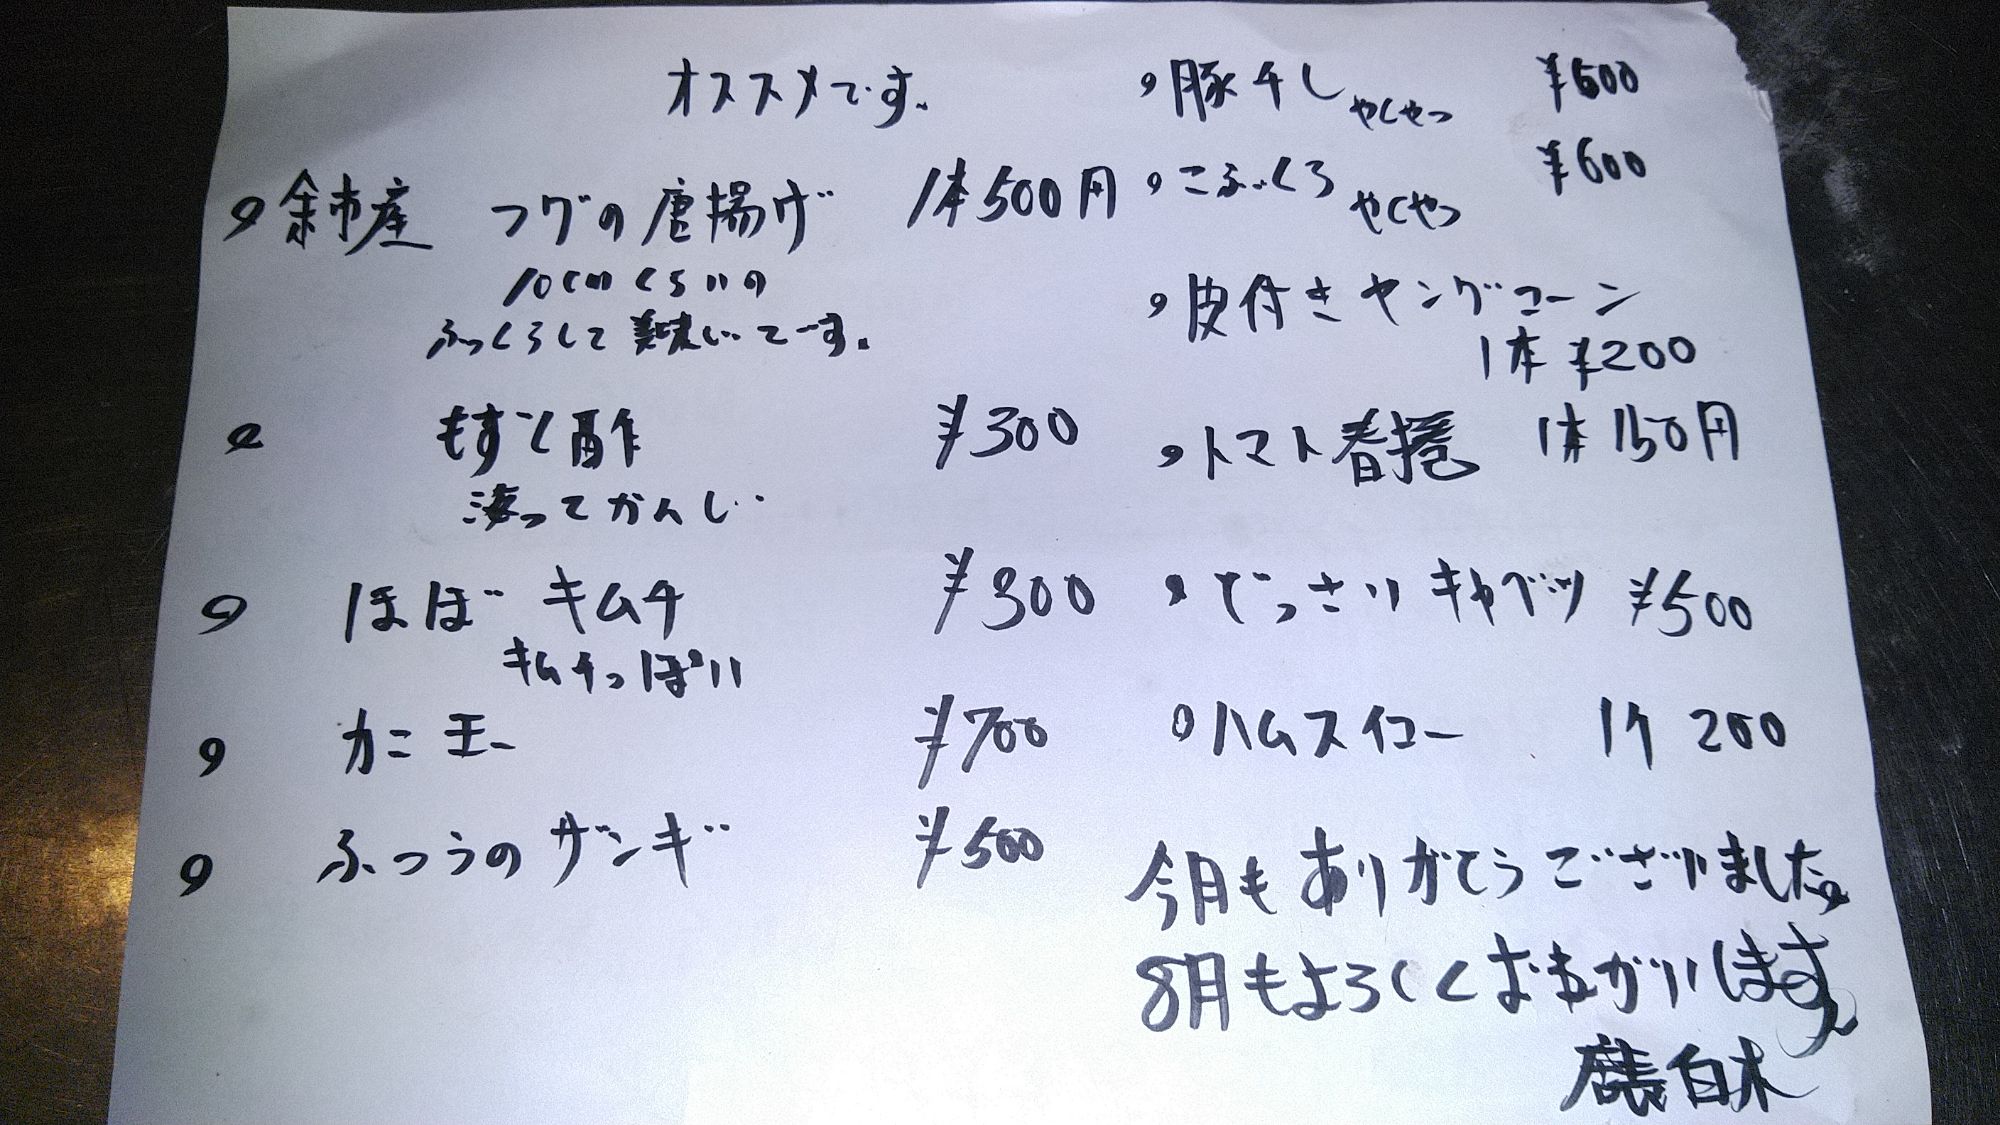 オススメです。
余市産 フグの唐揚げ 1本500円
10cmくらいの
ふっくらして美味しいです。
もずく酢 ¥300
凍ってかんじ
ほぼ キムチ ¥300
キムチっぽい
カニ玉 ¥700
ふつうのザンギ ¥500
豚チレ やくやつ ¥500
こぶくろ やくやつ ¥600
皮付きヤングコーン
1本 ¥200
トマト春捲 1本 150円
どっさりキャベツ ¥500
ハムスイコー 1ケ 200
今月もありがとうございました。
8月もよろしくおねがいします
店長 白木